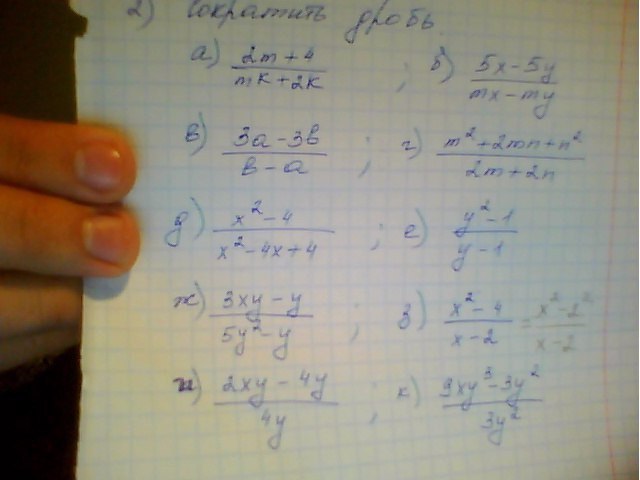 2) Сократить дробь
а) (2m+4)/(mk+2k) ; б) (5x-5y)/(mx-my)
в) (3a-3b)/(b-a) ; г) (m²+2mn+n²)/(2m+2n)
д) (x²-4)/(x²-4x+4) ; е) (y²-1)/(y-1)
ж) (3xy-y)/(5y²-y) ; з) (x²-4)/(x-2) = (x²-2²)/(x-2)
и) (2xy-4y)/(4y) ; к) (9xy³-3y²)/(3y²)